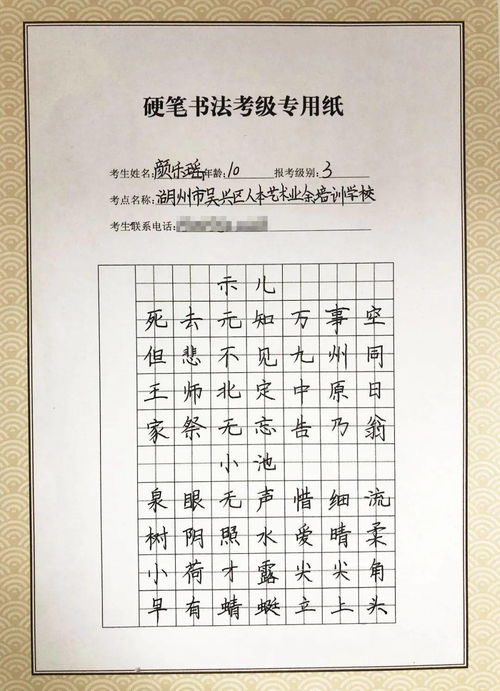 硬笔书法考级专用纸
考生姓名: 颜乐瑶 年龄: 10 报考级别: 3
考点名称: 湖州市吴兴区人本艺术业余培训学校
考生联系电话:
示儿
死去元知万事空
但悲不见九州同
王师北定中原日
家祭无忘告乃翁
小池
泉眼无声惜细流
树阴照水爱晴柔
小荷才露尖尖角
早有蜻蜓立上头